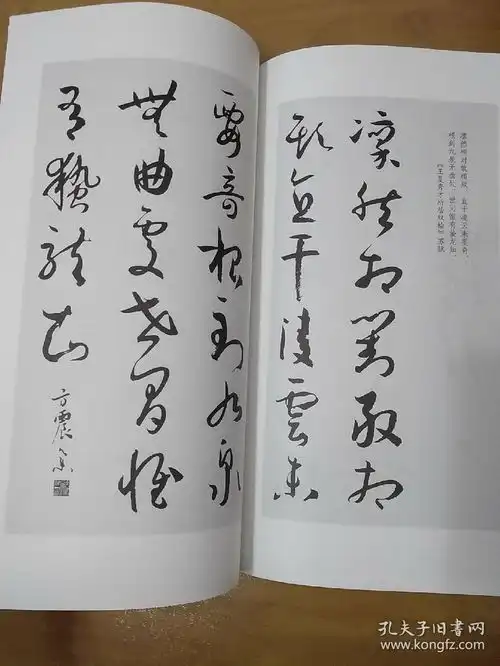 凛然相对敢相欺，直干凌云未要奇。
根到九泉无曲处，世间惟有蛰龙知。
《王复秀才所居双桧》苏轼
凛然相對敢相
欺直干凌雲未
要奇根到九泉
無曲處世間惟
有蟄龍知
方震書
孔夫子旧书网
www.kongfz.com